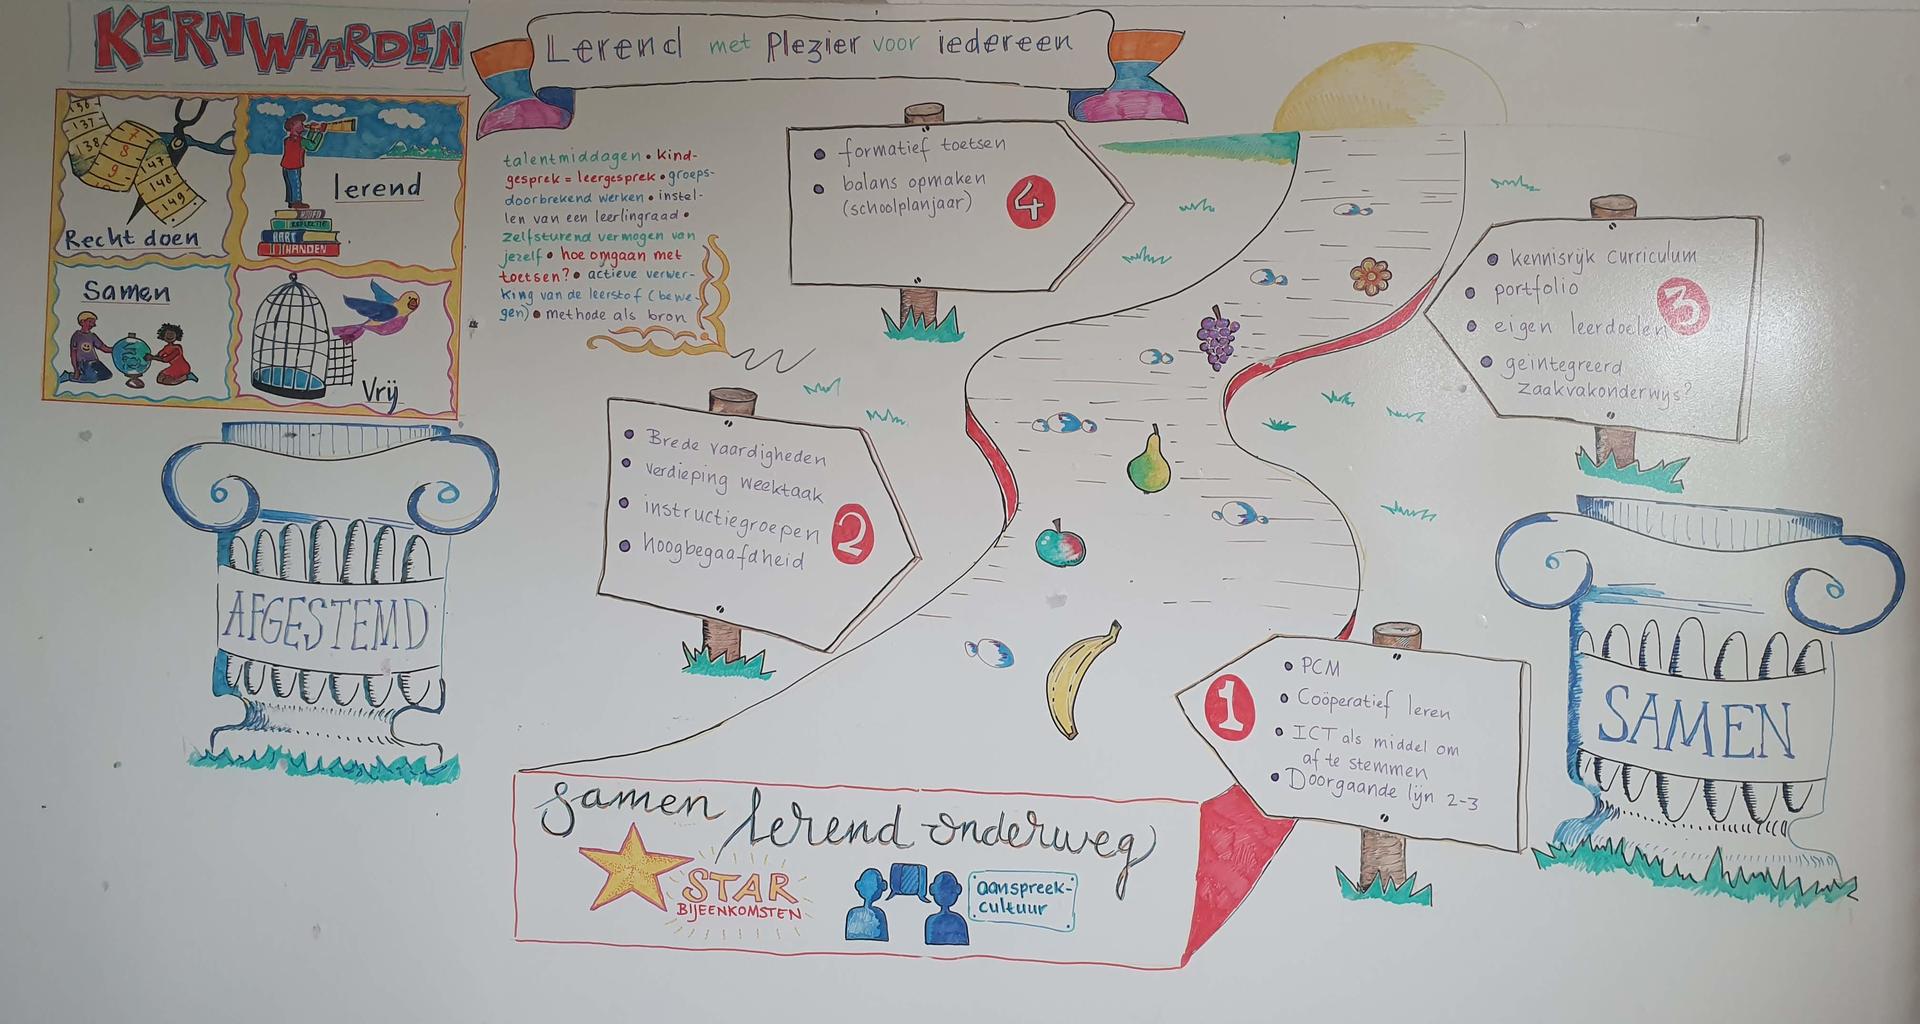 KERNWAARDEN
136
137
138
7
8
9
147
148
149
Recht doen
lerend
HOOFD
REFLECTIE
HART
HANDEN
Samen
Vrij
Lerend met Plezier voor iedereen
talentmiddagen • kind-
gesprek = leergesprek • groeps-
doorbrekend werken • instel-
len van een leerlingraad •
zelfsturend vermogen van
jezelf • hoe omgaan met
toetsen? • actieve verwer-
king van de leerstof (bewe-
gen) • methode als bron
• formatief toetsen
• balans opmaken
(schoolplanjaar)
4
• kennisrijk curriculum
• portfolio
• eigen leerdoelen
• geïntegreerd
zaakvakonderwijs?
3
• Brede vaardigheden
• verdieping weektaak
• instructiegroepen
• hoogbegaafdheid
2
• PCM
• Coöperatief leren
• ICT als middel om
af te stemmen
• Doorgaande lijn 2-3
1
AFGESTEMD
SAMEN
samen lerend onderweg
STAR
BIJEENKOMSTEN
aanspreek-
cultuur